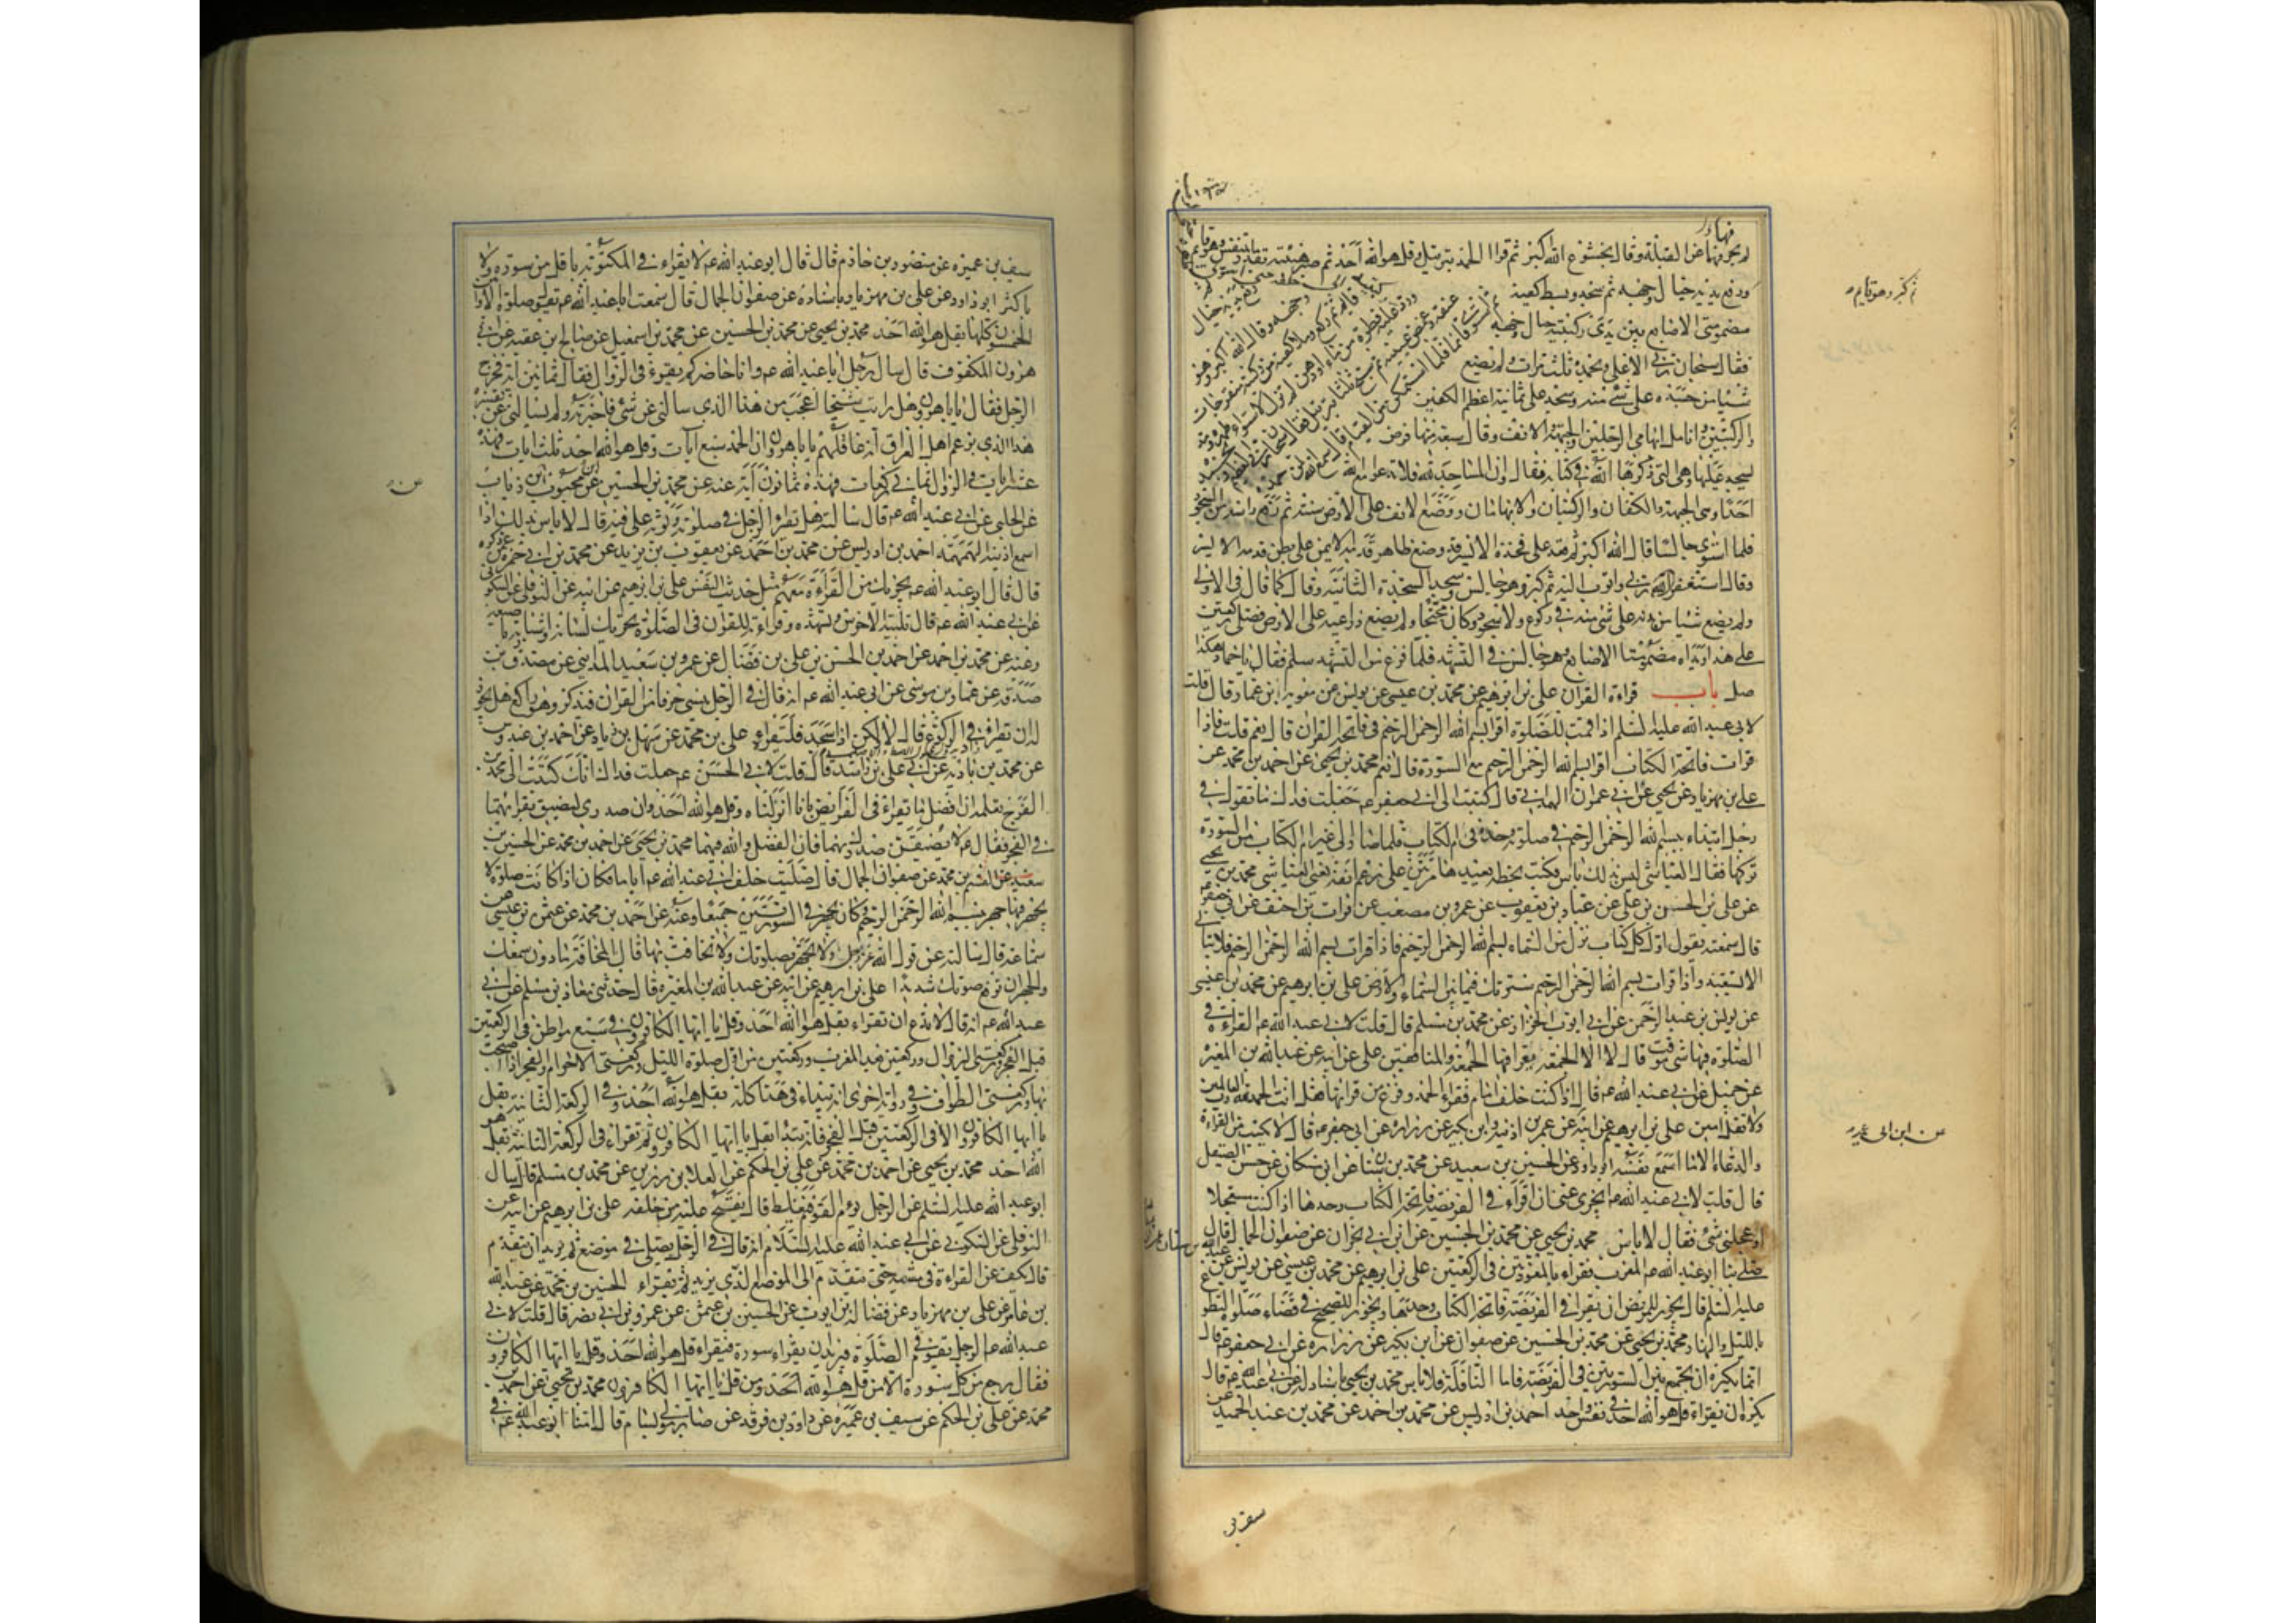 لم يحرفهما عن القبلة وقال بخشوع الله اكبر ثم قرا الحمد بترتيل وقل هو الله احد ثم صبر هنيئة بقدر ما يتنفس وهو قايم
ورفع يديه حيال وجهه ثم سجد وبسط كفيه
مضمومتي الاصابع بين يدي ركبتيه حيال وجهه
فقال سبحان ربي الاعلى وبحمده ثلث مرات ولم يضع
شيئا من جسده على شئ منه وسجد على ثمانية اعظم الكفين
والركبتين وانامل ابهامي الرجلين والجبهة والانف وقال سبعة منها فرض
يسجد عليها وهي التي ذكرها الله في كتابه فقال وان المساجد لله فلا تدعوا مع الله
احدا وهي الجبهة والكفان والركبتان والابهامان ووضع الانف على الارض سنة ثم رفع راسه من السجود
فلما استوى جالسا قال الله اكبر ثم قعد على فخذه الايسر قد وضع ظاهر قدمه الايمن على بطن قدمه الايسر
وقال استغفر الله ربي واتوب اليه ثم كبر وهو جالس وسجد السجدة الثانية وقال كما قال في الاولى
ولم يضع شيئا من بدنه على شئ منه في ركوع ولا سجود وكان مجنحا ولم يضع ذراعيه على الارض فصلى ركعتين
على هذا ويداه مضمومتا الاصابع وهو جالس في التشهد فلما فرغ من التشهد سلم فقال يا حماد هكذا
صل باب قراءة القران علي بن ابرهيم عن محمد بن عيسى عن يونس عن معوية ابن عمار قال قلت
لابي عبد الله عليه السلم اذا قمت للصلوة اقرا بسم الله الرحمن الرحيم في فاتحة القران قال نعم قلت فاذا
قرات فاتحة الكتاب اقرا بسم الله الرحمن الرحيم مع السورة قال نعم محمد بن يحيى عن احمد بن محمد عن
علي بن مهزيار عن يحيى بن ابي عمران الهمداني قال كتبت الى ابي جعفر عم جعلت فداك ما تقول في
رجل ابتداء ببسم الله الرحمن الرحيم في صلوته وحده في ام الكتاب فلما صار الى غير ام الكتاب من السورة
تركها فقال العباشي ليس بذلك باس فكتب بخطه يعيدها مرتين على رغم انفه يعني العباسي محمد بن يحيى
عن علي بن الحسن بن علي عن عباد بن يعقوب عن عمرو بن مصعب عن فرات بن احنف عن ابي جعفر عم
قال سمعته يقول اول كل كتاب نزل من السماء بسم الله الرحمن الرحيم فاذا قرات بسم الله الرحمن الرحيم فلا تبالي
الا تستعيذ واذا قرات بسم الله الرحمن الرحيم سترتك فيما بين السماء والارض علي بن ابرهيم عن محمد بن عيسى
عن يونس بن عبد الرحمن عن ابي ايوب الخزاز عن محمد بن مسلم قال قلت لابي عبد الله عم القراءة في
الصلوة فيها شئ موقت قال لا الا الجمعة يقرا فيها الجمعة والمنافقين علي عن ابيه عن عبد الله بن المغيرة
عن جميل عن ابي عبد الله عم قال اذا كنت خلف امام فقراء الحمد وفرغ من قرائتها فقل انت الحمد لله رب العالمين
ولا تقل امين علي بن ابرهيم عن ابيه عن عمر بن اذينة وابن بكير عن زرارة عن ابي جعفر عم قال لا يكتب من القراءة
والدعاء الا ما اسمع نفسه ابو داود عن الحسين بن سعيد عن محمد بن سنان عن ابن مسكان عن حسن الصيقل
قال قلت لابي عبد الله عم ايجزي عني ان اقراء في الفريضة فاتحة الكتاب وحدها اذا كنت مستعجلا
او عجلني شئ فقال لا باس محمد بن يحيى عن محمد بن الحسين عن ابن ابي نجران عن صفوان الجمال قال
صلى بنا ابو عبد الله عم المغرب فقراء بالمعوذتين في الركعتين علي بن ابرهيم عن محمد بن عيسى عن يونس عن
عليه السلم قال يجوز للمريض ان يقرا في الفريضة فاتحة الكتاب وحدها ويجوز للصحيح في قضاء صلوة التطوع
بالليل والنهار محمد بن يحيى عن محمد بن الحسين عن صفوان عن ابن بكير عن زرارة عن ابي جعفر عم قال
انما يكره ان يجمع بين السورتين في الفريضة فاما النافلة فلا باس محمد بن يحيى باسناد له عن ابي عبد الله عم قال
يكره ان يقراء قل هو الله احد في نفس واحد احمد بن ادريس عن محمد بن احمد عن محمد بن عبد الحميد عن
ثم كبر وهو قايم
عن ابن ابي عمير
سيف بن
سيف بن عميرة عن منصور بن حازم قال قال ابو عبد الله عم لا يقراء في المكتوبة باقل من سورة ولا
باكثر ابو داود عن علي بن مهزيار باسناده عن صفوان الجمال قال سمعت ابا عبد الله عم يقول صلوة الاوابين
الخمسون كلها بقل هو الله احد محمد بن يحيى عن محمد بن الحسين عن محمد بن اسمعيل عن صالح ابن عقبة عن ابي
هرون المكفوف قال سال رجل ابا عبد الله عم وانا حاضر كم يقرء في الزوال فقال ثمانين اية فخرج
الرجل فقال يا با هرون هل رايت شيخا اعجب من هذا الذي سالني عن شئ فاخبرته ولم يسالني عن تفسيره
هذا الذي يزعم اهل العراق انه عاقلهم يا با هرون ان الحمد سبع آيات وقل هو الله احد ثلث ايات فهذه
عشر ايات والزوال ثماني ركعات فهذه ثمانون آية عنه عن محمد بن الحسين عن ابن محبوب عن ابن رئاب
عن الحلبي عن ابي عبد الله عم قال سالته هل يقراء الرجل في صلوته وثوبه على فيه قال لا باس بذلك اذا
اسمع اذنيه الهمهمة احمد بن ادريس عن محمد بن احمد عن يعقوب بن يزيد عن محمد بن ابي حمزة عمن ذكره
قال قال ابو عبد الله عم يجزيك من القراءة معهم مثل حديث النفس علي بن ابرهيم عن ابيه عن النوفلي عن السكوني
عن ابي عبد الله عم قال تلبية الاخرس وتشهده وقراءته للقران في الصلوة تحريك لسانه واشارته باصبعه
وعنه عن محمد بن احمد عن احمد بن الحسن بن علي بن فضال عن عمرو بن سعيد المدايني عن مصدق بن
صدقة عن عمار بن موسى عن ابي عبد الله عم انه قال في الرجل ينسى حرفا من القران فذكر وهو راكع هل يجوز
له ان يقراه في الركوع قال لا ولكن اذا سجد فليقراه علي بن محمد عن سهل بن زياد عن احمد بن عبدوس
عن محمد بن زاديه عن ابي علي بن راشد قال قلت لابي الحسن عم جعلت فداك انك كتبت الى محمد بن
الفرج تعلمه ان افضل ما تقراء في الفرايض بانا انزلناه وقل هو الله احد وان صدري ليضيق بقرائتهما
في الفجر فقال عم لا يضيقن صدرك بهما فان الفضل والله فيهما محمد بن يحيى عن احمد بن محمد عن الحسين بن
سعيد عن القسم بن محمد عن صفوان الجمال قال صليت خلف ابي عبد الله عم اياما فكان اذا كانت صلوة لا
يجهر فيها جهر ببسم الله الرحمن الرحيم وكان يجهر في السورتين جميعا وعنه عن احمد بن محمد عن عثمن بن عيسى عن
سماعة قال سالته عن قول الله عز وجل ولا تجهر بصلوتك ولا تخافت بها قال المخافتة ما دون سمعك
والجهر ان ترفع صوتك شديدا علي بن ابرهيم عن ابيه عن عبد الله بن المغيرة قال حدثني معاذ بن مسلم عن ابي
عبد الله عم انه قال لا تدع ان تقراء بقل هو الله احد وقل يا ايها الكافرون في سبع مواطن في الركعتين
قبل الفجر وركعتي الزوال وركعتين بعد المغرب وركعتين من اول صلوة الليل وركعتي الاحرام والفجر اذا اصبحت
بها وركعتي الطواف وفي رواية اخرى انه يبداء في هذا كله بقل هو الله احد وفي الركعة الثانية بقل
يا ايها الكافرون الا في الركعتين قبل الفجر فانه يبدا بقل يا ايها الكافرون ثم يقراء في الركعة الثانية بقل هو
الله احد محمد بن يحيى عن احمد بن محمد عن علي بن الحكم عن العلا بن رزين عن محمد بن مسلم قال سال
ابو عبد الله عليه السلم عن الرجل يؤم القوم فيغلط قال يفتح عليه من خلفه علي بن ابرهيم عن ابيه عن
النوفلي عن السكوني عن ابي عبد الله عليه السلام انه قال في الرجل يصلي في موضع ثم يريد ان يتقدم
قال يكف عن القراءة في مشيه حتى يتقدم الى الموضع الذي يريد ثم يقراء الحسين بن محمد عن عبد الله
بن عامر عن علي بن مهزيار عن فضالة بن ايوب عن الحسين بن عثمن عن عمرو بن ابي نصر قال قلت لابي
عبد الله عم الرجل يقوم في الصلوة فيريد ان يقراء سورة فيقراء قل هو الله احد وقل يا ايها الكافرون
فقال يرجع من كل سورة الا من قل هو الله احد ومن قل يا ايها الكافرون محمد بن يحيى عن احمد بن
محمد عن علي بن الحكم عن سيف بن عميرة عن داود بن فرقد عن صابر مولى بسام قال امنا ابو عبد الله عم في